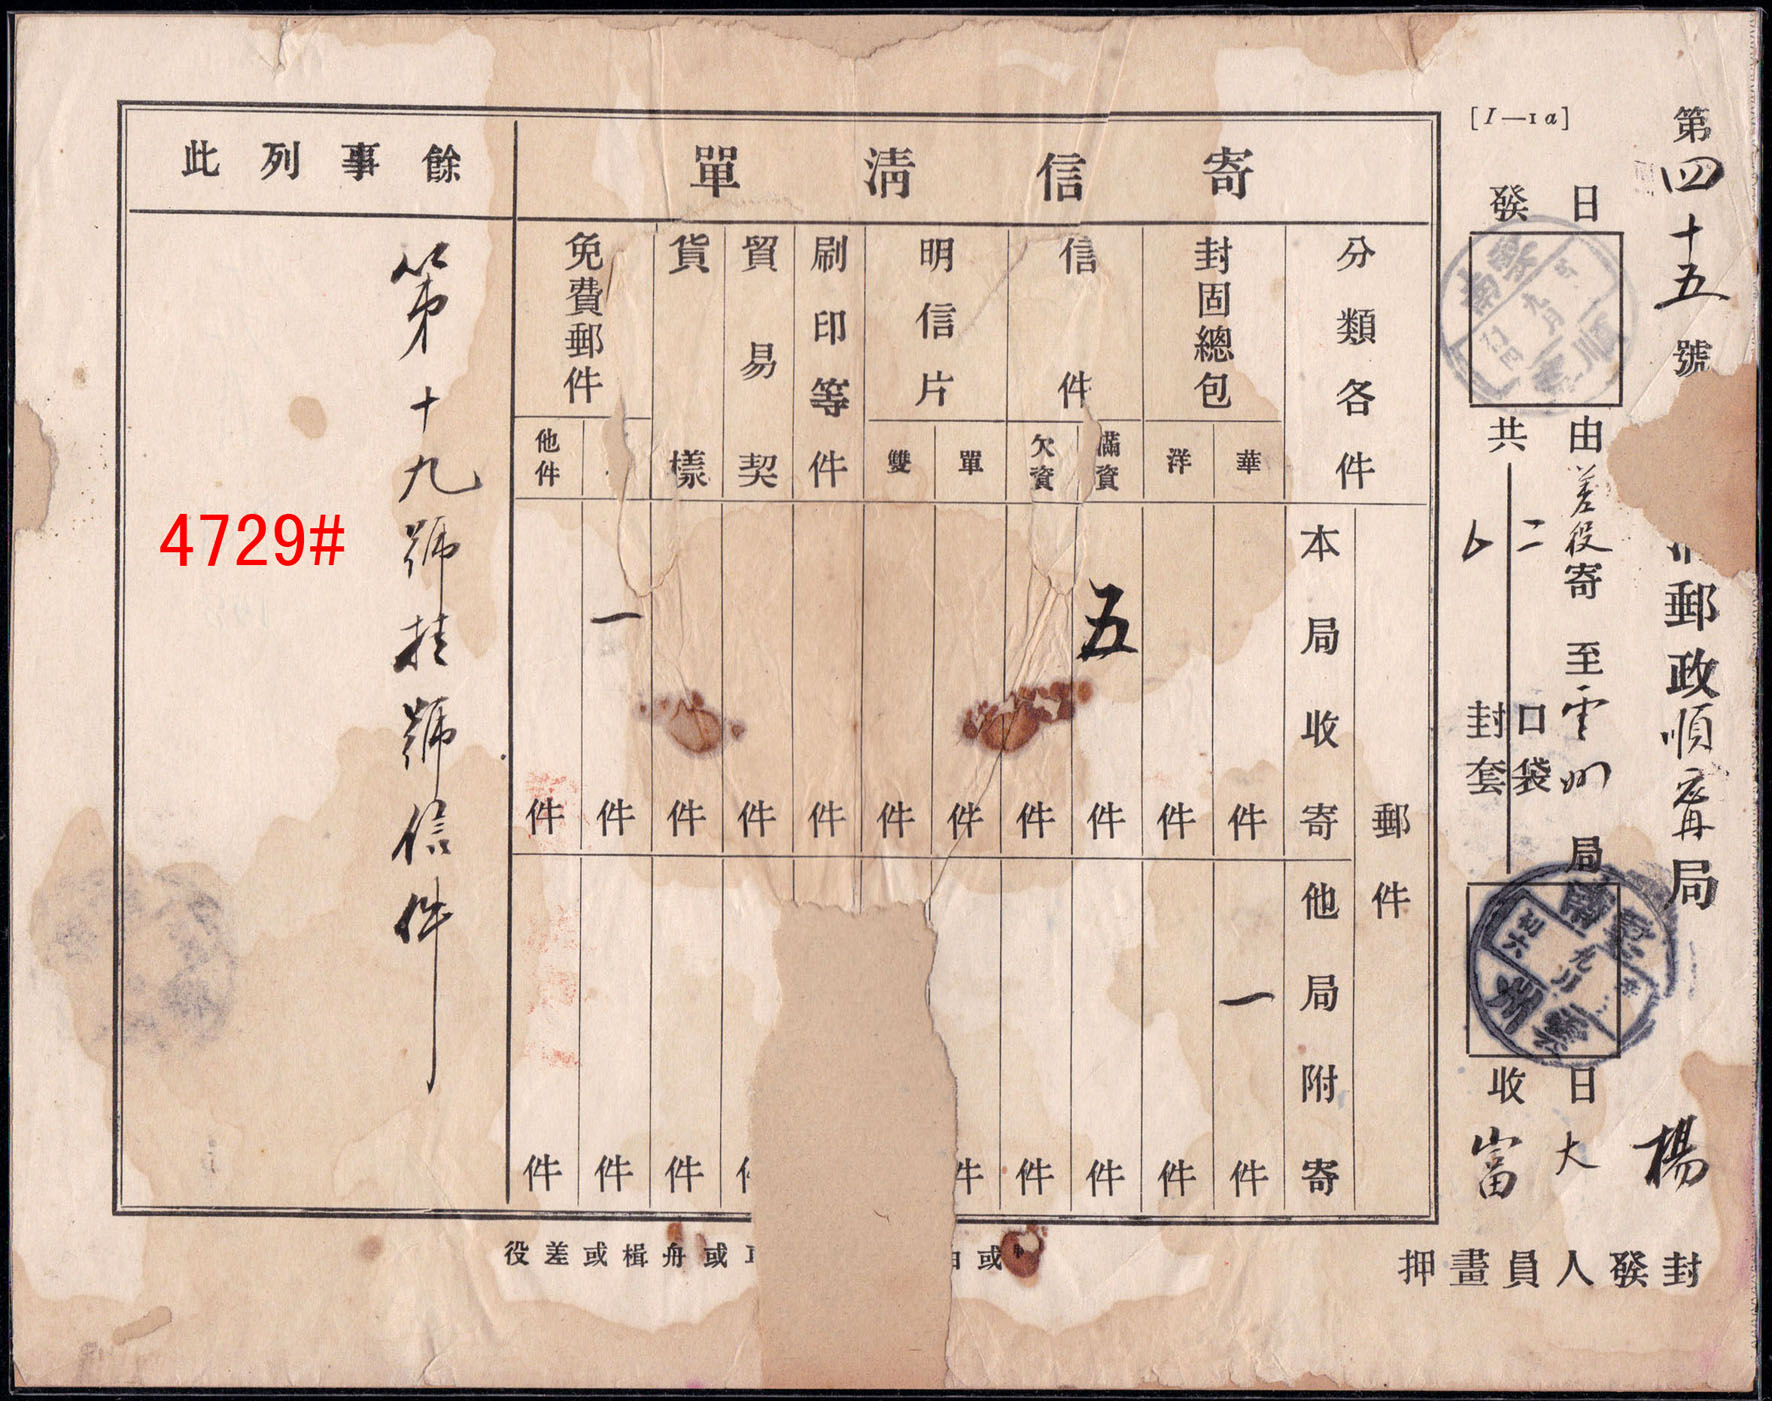 第四十五號
郵政順寧局
[I—1a]
發日
由差役寄至雲州局
共二口袋
6封套
收日
楊大富
封發人員畫押
寄信清單
餘事列此
分類各件
封固總包
華
洋
信件
滿資
欠資
明信片
單
雙
刷印等件
貿易契
貨樣
免費郵件
他件
郵件
本局收寄
件 件 件 件 件 件 件 件 件 件 件
五
一
他局附寄
一
件 件 件 件 件 件 件 件
第十九號掛號信件
4729#
或舟楫或差役
雲南
順寧
九月
雲南
雲州
九月
初六